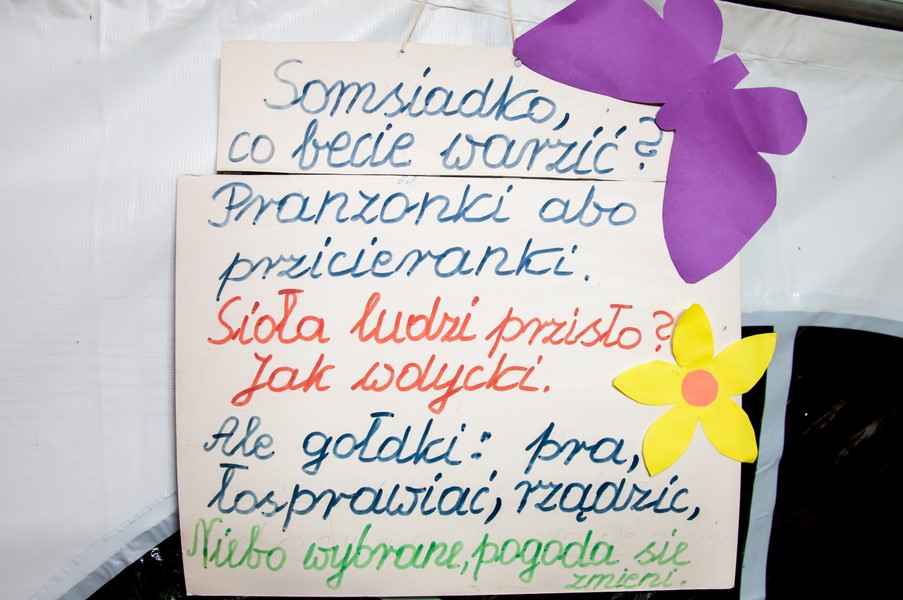 Somsiadko,
co becie warzić?
Pranzonki abo
przicieranki.
Sioła ludzi przisło?
Jak wołycki.
Ale gołdki: pra,
łosprawiać, rządzić,
Niebo wybrane, pogoda się
zmieni.